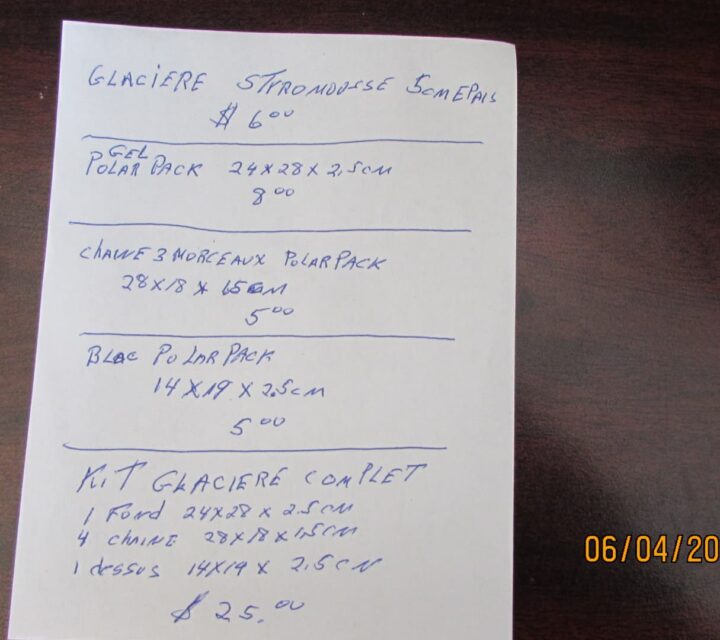 GLACIERE STYROMOUSSE 5cm EPAIS
$ 6 00
GEL
POLAR PACK 24 X 28 X 2.5 cm
8 00
CHAINE 3 MORCEAUX POLAR PACK
28 X 18 X 1.5 cm
5 00
BLOC POLAR PACK
14 X 19 X 2.5 cm
5 00
KIT GLACIERE COMPLET
1 Fond 24X28 X 2.5 cm
4 chaine 28X18X1.5cm
1 dessus 14X19 X 2.5 cm
$ 25.00
06/04/20